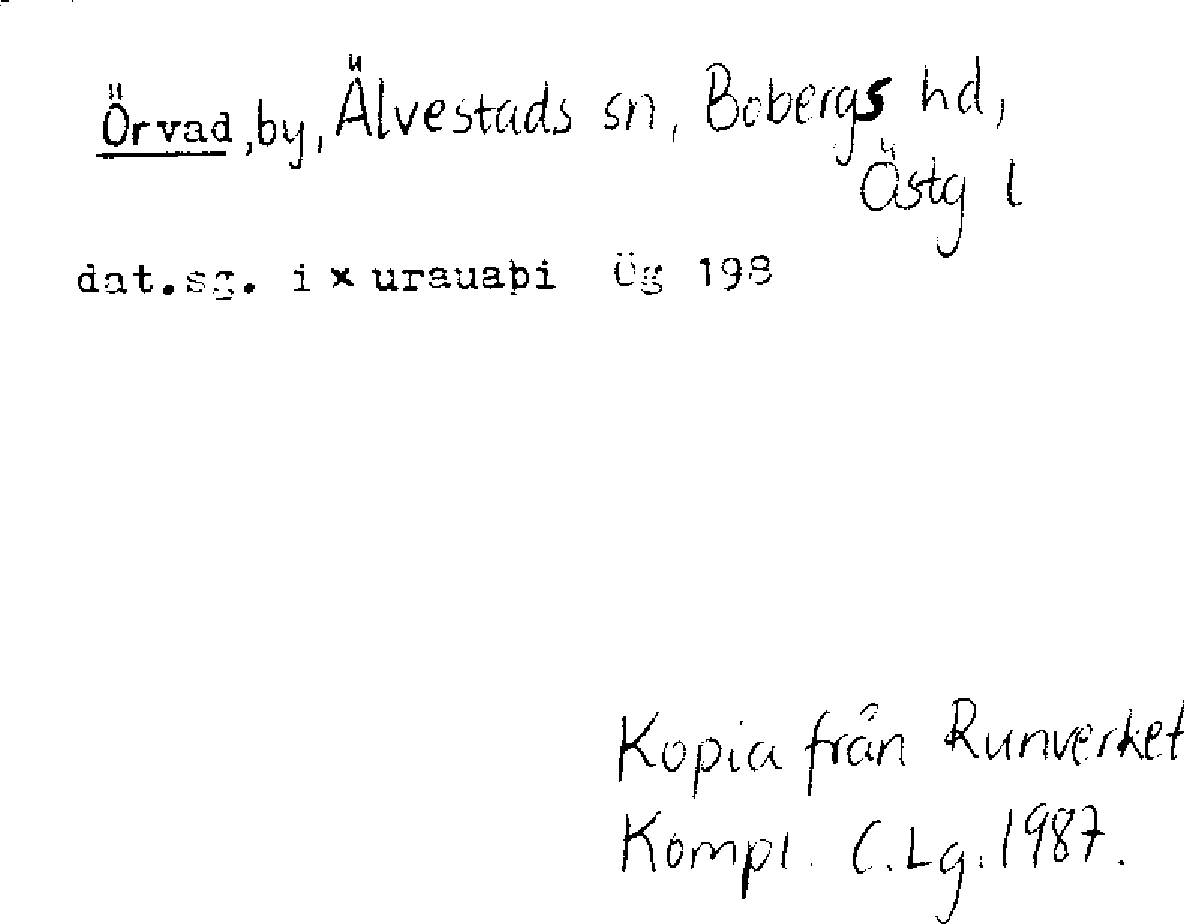 Örvad, by, Älvestads sn, Bobergs hd,
Östg l
dat.sg. i × urauaþi Ög 198
Kopia från Runverket
Kompl. C.Lg. 1987.